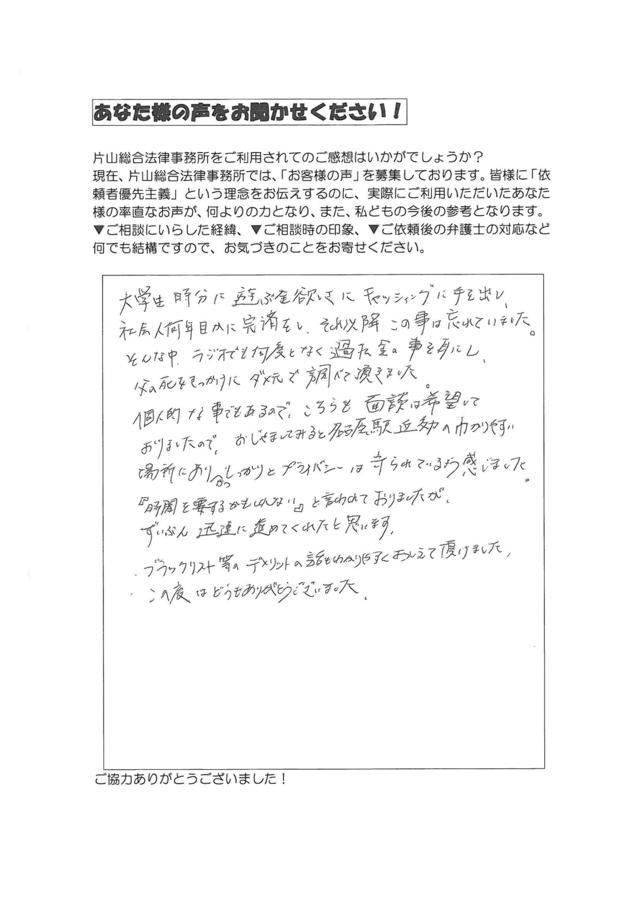 あなた様の声をお聞かせください！
片山総合法律事務所をご利用されてのご感想はいかがでしょうか？
現在、片山総合法律事務所では、「お客様の声」を募集しております。皆様に「依
頼者優先主義」という理念をお伝えするのに、実際にご利用いただいたあなた
様の率直なお声が、何よりの力となり、また、私どもの今後の参考となります。
▼ご相談にいらした経緯、▼ご相談時の印象、▼ご依頼後の弁護士の対応など
何でも結構ですので、お気づきのことをお寄せください。
大学生時分に遊ぶ金欲しさにキャッシングに手を出し、
社会人何年目かに完済をし、それ以降この事は忘れていました。
そんな中、ラジオでも何度となく過払金の事を耳にし、
父の死をきっかけにダメ元で調べて頂きました。
個人的な事でもあるので、こちらも面談は希望して
おりましたので、おじゃましてみると名古屋駅近効のわかりやすい
場所にあり、かつしっかりとプライバシーは守られているよう感じました。
『時間を要するかもしんない』と言われておりましたが、
ずいぶん迅速に進めてくれたと思います。
・ブラックリスト等のデメリットの話もわかりやすくおしえて頂けました。
・この度はどうもありがとうございました。
ご協力ありがとうございました！